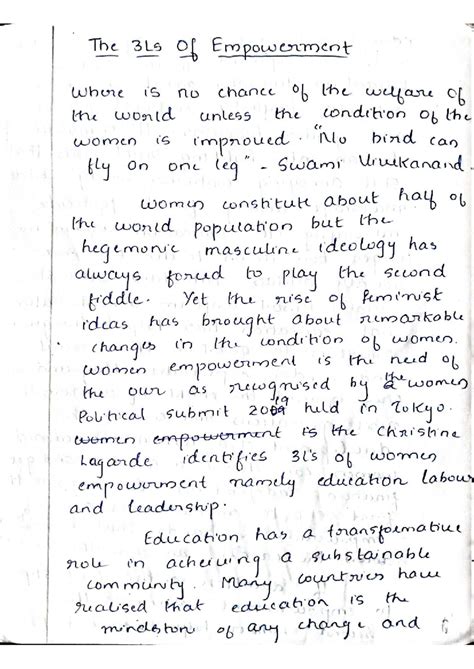 The 3Ls Of Empowerment
where is no chance of the welfare of
the world unless the condition of the
women is improved. "No bird can
fly on one leg" - Swami Vivekanand.
Women constitute about half of
the world population but the
hegemonic masculine ideology has
always forced to play the second
fiddle. Yet the rise of feminist
ideas has brought about remarkable
changes in the condition of women.
women empowerment is the need of
the our as recognised by the women
Political submit 2019 held in Tokyo.
women empowerment is the Christine
Lagarde identifies 3L's of women
empowerment namely education labour
and leadership.
Education has a transformative
role in acheiving a substainable
community. Many countries have
realised that education is the
of any change and